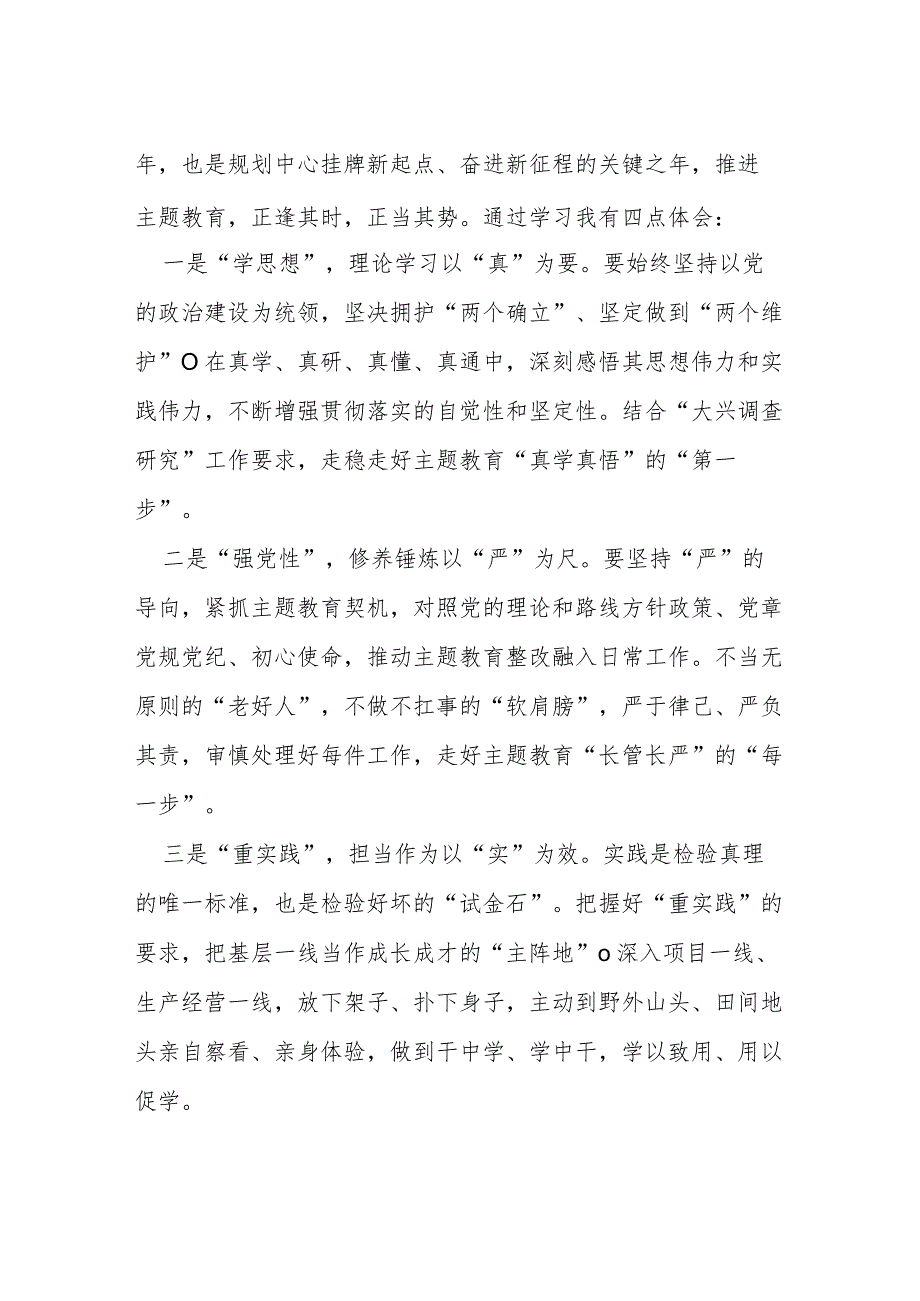 年，也是规划中心挂牌新起点、奋进新征程的关键之年，推进
主题教育，正逢其时，正当其势。通过学习我有四点体会：
一是“学思想”，理论学习以“真”为要。要始终坚持以党
的政治建设为统领，坚决拥护“两个确立”、坚定做到“两个维
护”O在真学、真研、真懂、真通中，深刻感悟其思想伟力和实
践伟力，不断增强贯彻落实的自觉性和坚定性。结合“大兴调查
研究”工作要求，走稳走好主题教育“真学真悟”的“第一
步”。
二是“强党性”，修养锤炼以“严”为尺。要坚持“严”的
导向，紧抓主题教育契机，对照党的理论和路线方针政策、党章
党规党纪、初心使命，推动主题教育整改融入日常工作。不当无
原则的“老好人”，不做不扛事的“软肩膀”，严于律己、严负
其责，审慎处理好每件工作，走好主题教育“长管长严”的“每
一步”。
三是“重实践”，担当作为以“实”为效。实践是检验真理
的唯一标准，也是检验好坏的“试金石”。把握好“重实践”的
要求，把基层一线当作成长成才的“主阵地”o深入项目一线、
生产经营一线，放下架子、扑下身子，主动到野外山头、田间地
头亲自察看、亲身体验，做到干中学、学中干，学以致用、用以
促学。